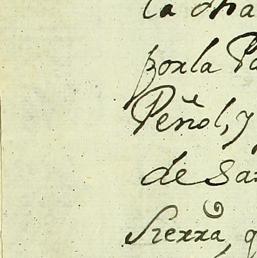 la otra
por la Pa
Peñol, y
de Sa
Sierra, q